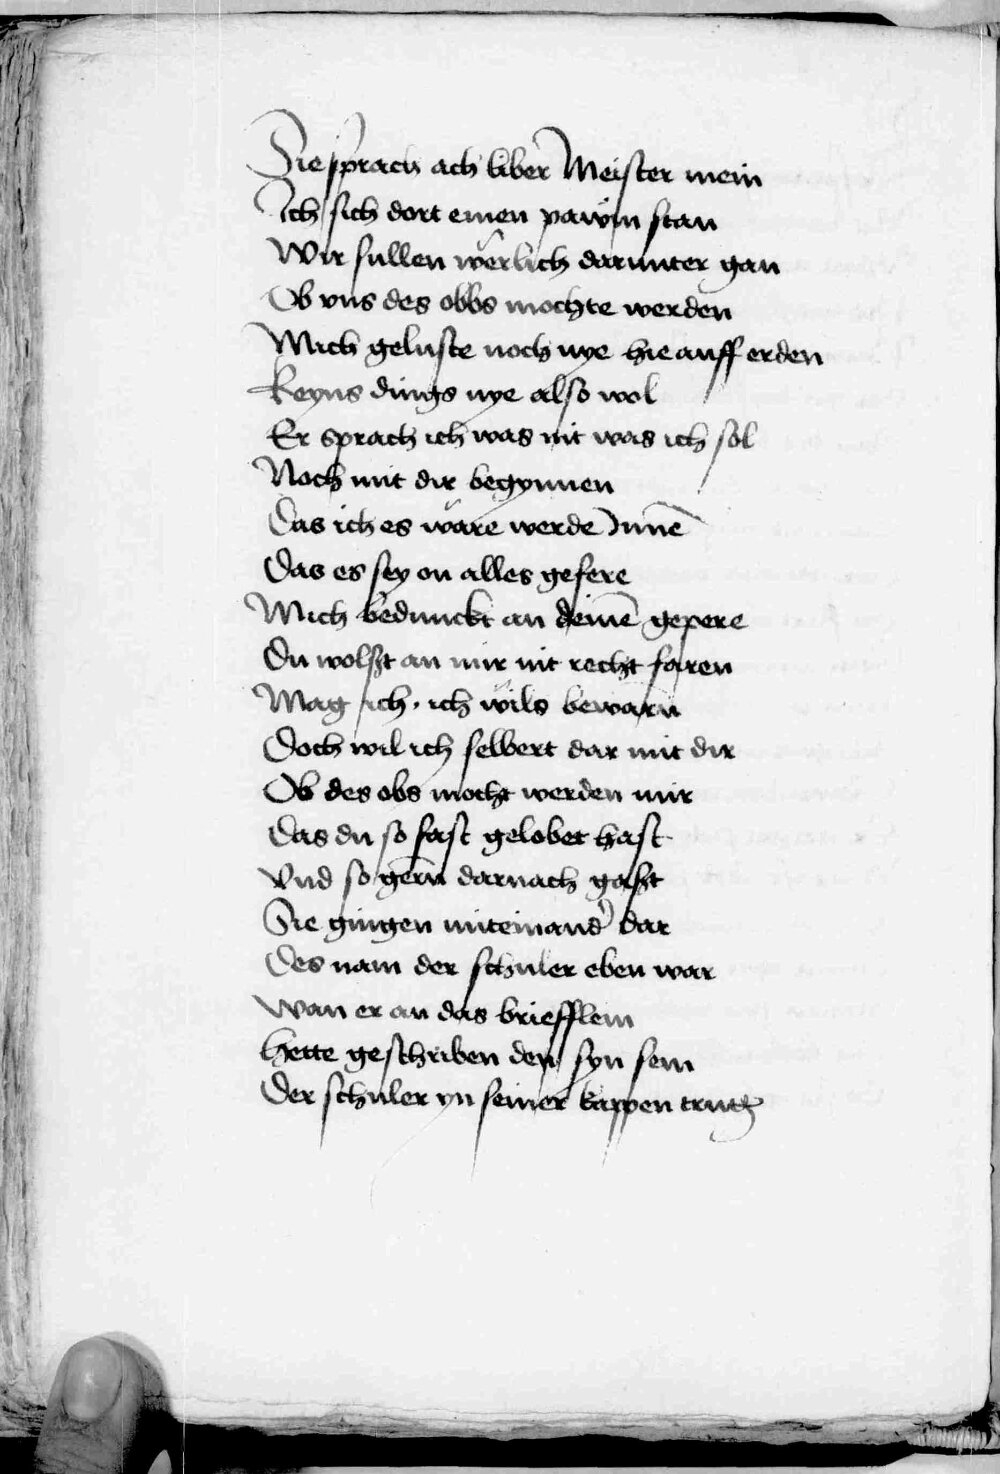 Sie sprach ach liber Meister mein
Ich sich dort einen pawm stan
Wir sullen werlich darunter gan
Ob vns des obbs mochte werden
Mich geluste noch nye hie auff erden
Keyns dings nye also wol
Er sprach ich was nit was ich sol
Noch mit dir begynnen
Das ich es ware werde Innē
Das es sey on alles gefere
Mich bedunckt an deinē gepere
Du wolst an mir nit recht faren
Mag ich · ich wils bewarn
Doch wil ich selbert dar mit dir
Ob des obs mocht werden mir
Das du so fast gelobet hast
Vnd so gern darnach gast
Sie gingen miteinand' dar
Des nam der schuler eben war
Wan er an das briefflein
Hette geschriben den syn sein
Der schuler yn seiner kappen trug